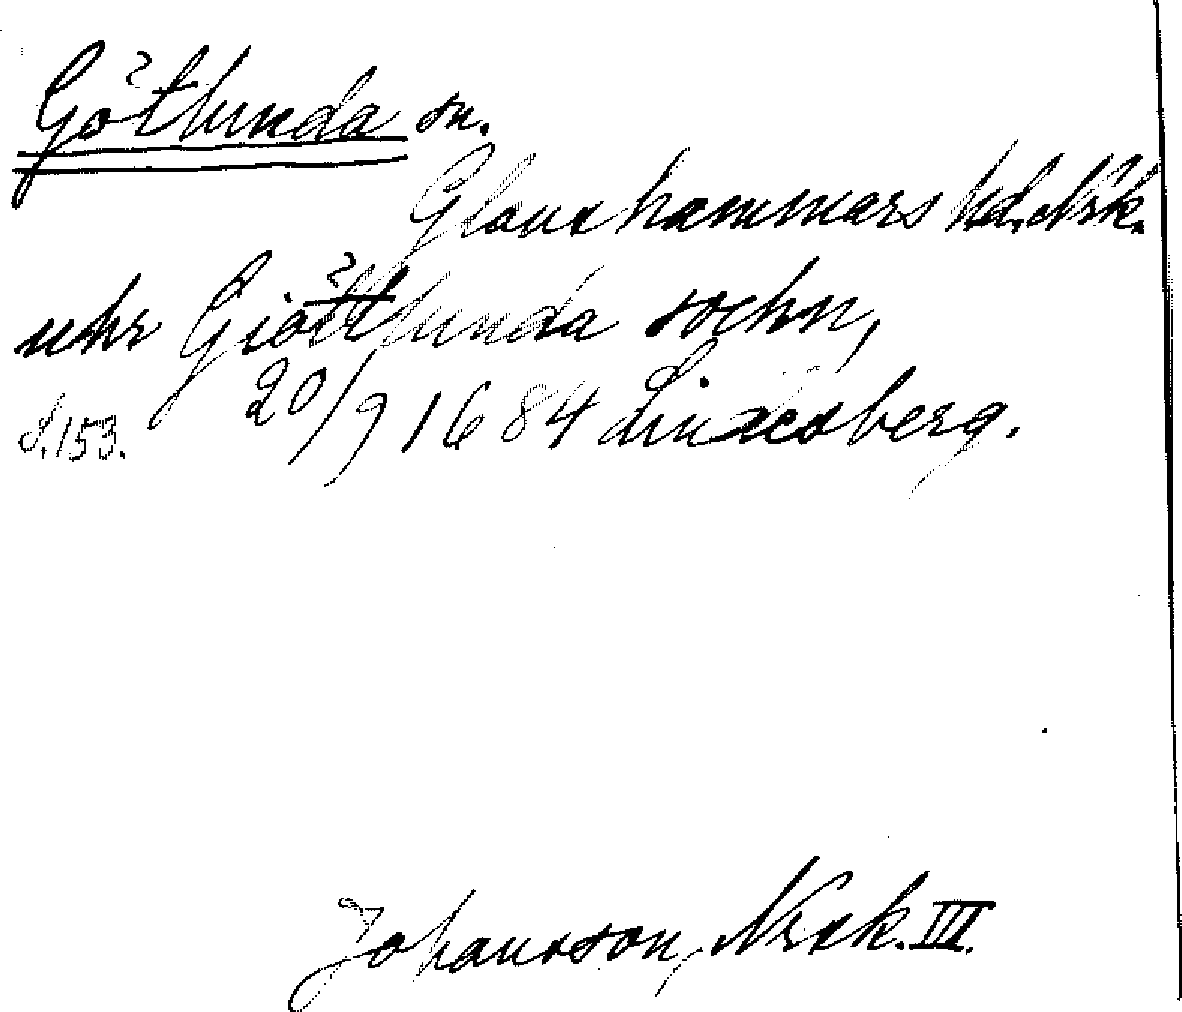 Götlunda sn.
Glanshammars hd. Nrk.
uhr Giöttlunda sochn,
20/9 1684 Lindesberg.
S. 153.
Johansson, Nrk. III.